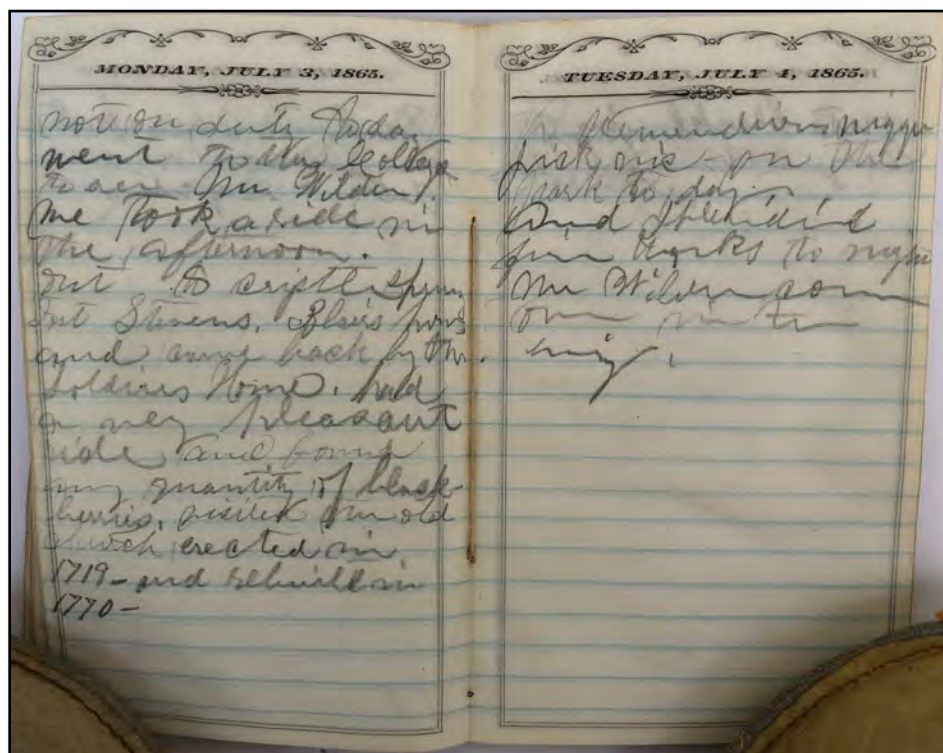 MONDAY, JULY 3, 1865.
not on duty today
went to the College
to see Mr Wilder.
We took a ride in
the afternoon.
out to
Fort Stevens. Blairs
and came back by the
Soldiers Home. had
a very pleasant
ride and found
any quantity of black
berries, visited an old
church erected in
1719 - and rebuilt in
1770 -
TUESDAY, JULY 4, 1865.
A nigger
pick nic - on the
park to day.
And Splendid
fire works to night
Mr Wilder